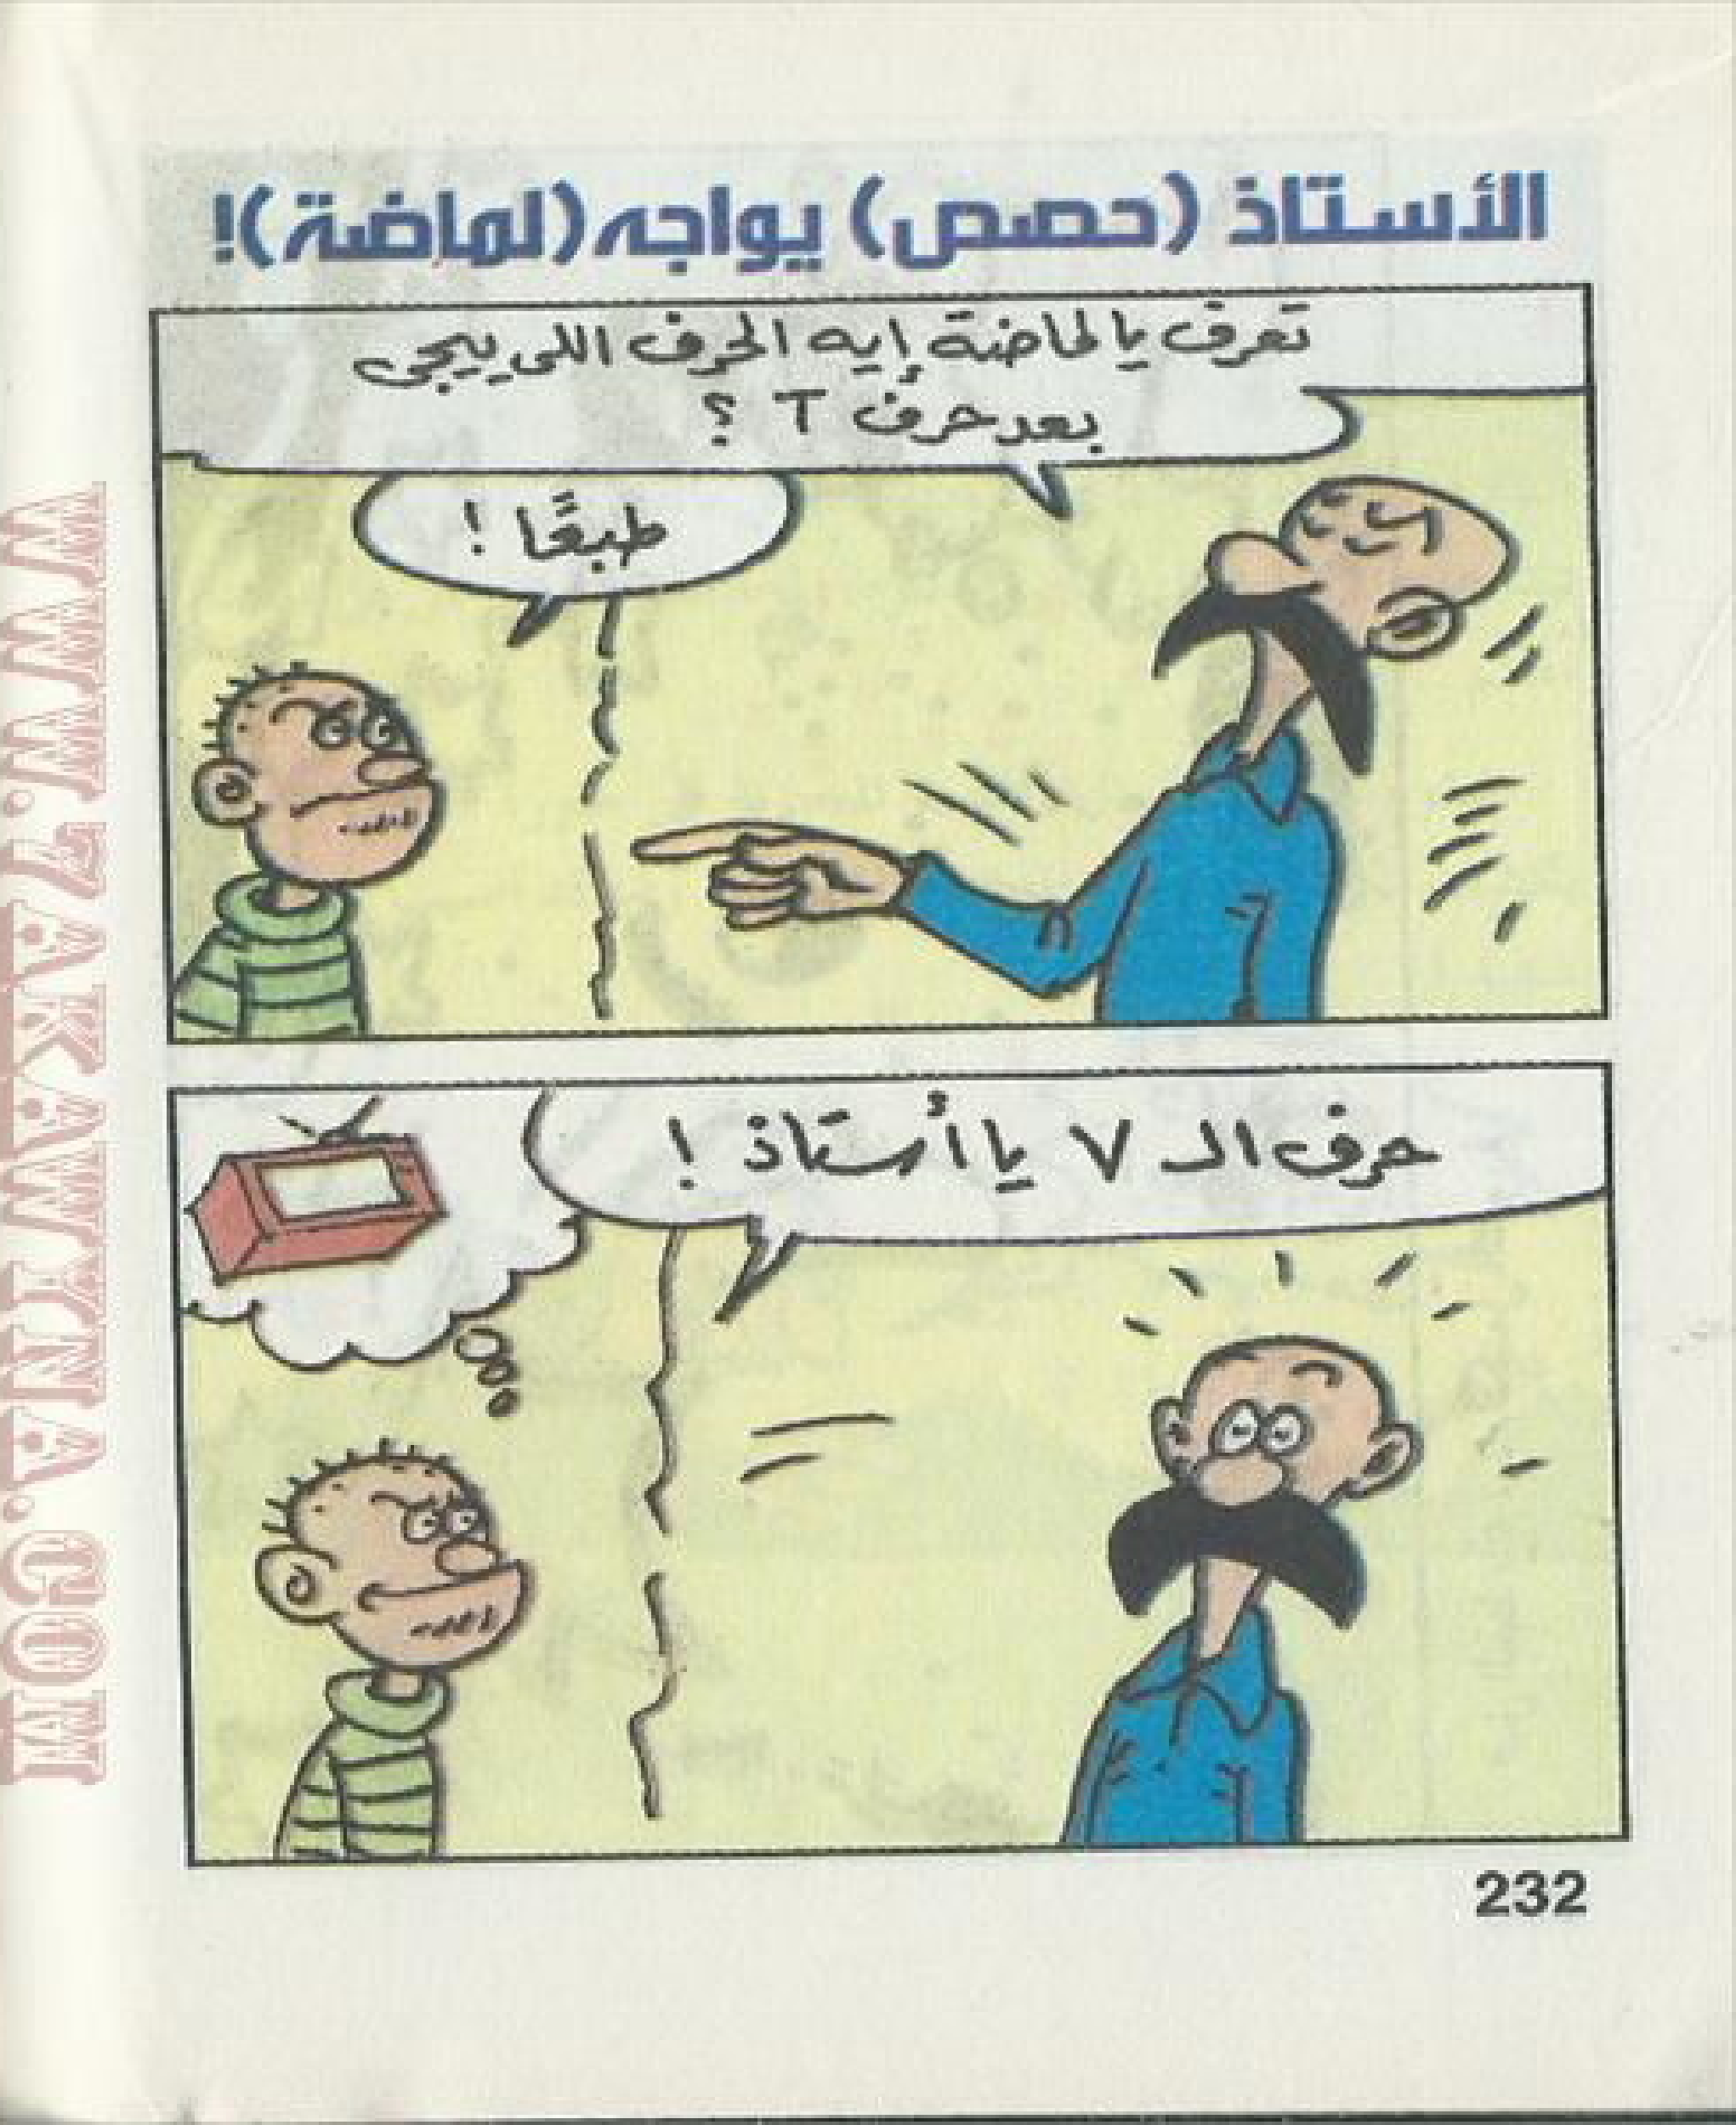 الأستاذ (حصص) يواجه (لماضة)!
تعرف يا لماضة إيه الحرف اللى بييجى
بعد حرف T ؟
طبعًا !
حرف الـ V يا أستاذ !
232
WWW.ZAKAWYNA.COM